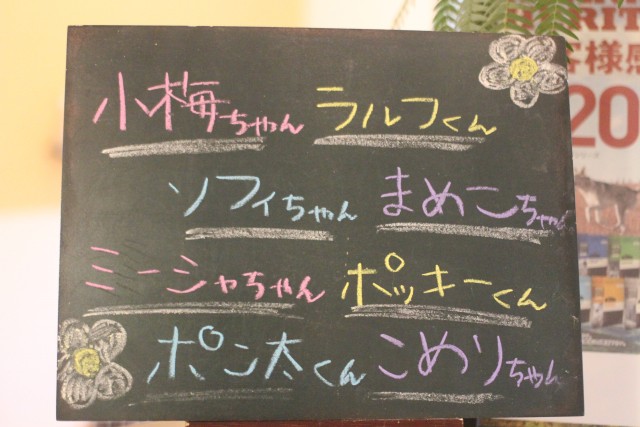 小梅ちゃん ラルフくん
ソフィちゃん まめこちゃん
ミーシャちゃん ポッキーくん
ポン太くん こめりちゃん
客様感
20